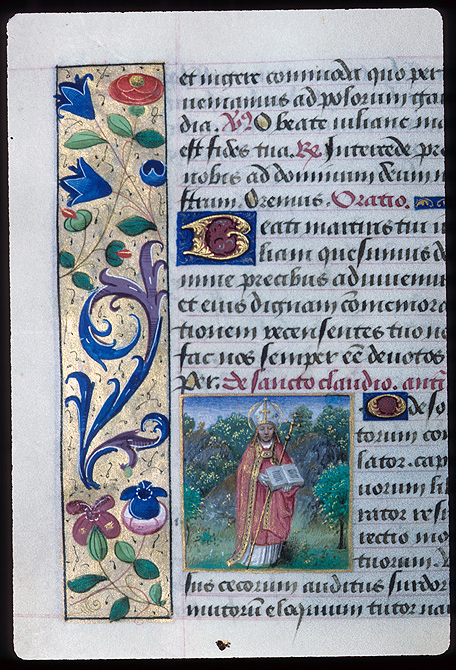 et iugere commoda quo per
ueniamus ad polorum gau
dia. V̄s O beate iuliane ma
est fides tua. R̄. Intercede pro
nobis ad dominum deum n
strum Oremus. Oratio.
Beati martiris tui iu
liani quesumus d
mine precibus adiuuemur
et eius dignam cōmemora
tionem recensentes tuo no
fac nos semper eē deuotos
Per. De sancto claudio. antī
O deso
torum con
lator. cap
uorum li
rator res
lectio mo
tuorum.
sus cecorum auditus surdor
mutorū eloquium tutor nau